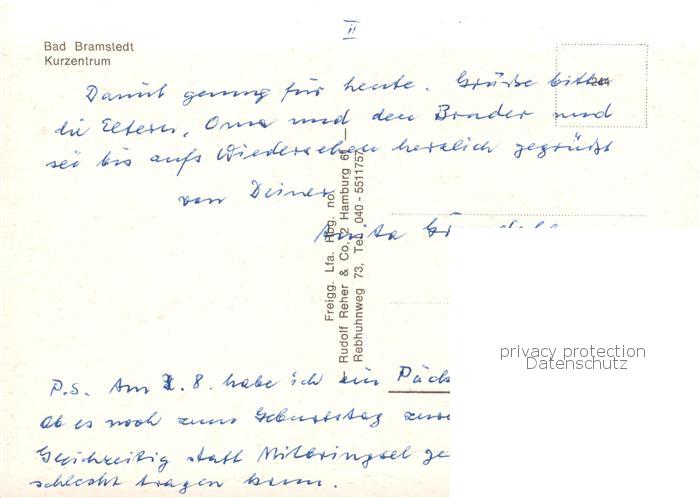 II
Bad Bramstedt
Kurzentrum
Damit genung für heute. Grüße bitte
die Eltern, Oma und den Bruder und
sei bis aufs Wiedersehen herzlich gegrüßt
von Deiner
Anita
Freigg. Lfa. Hbg. no.
Rudolf Reher & Co, 2 Hamburg 61
Rebhuhnweg 73, Tel. 040 - 5511757
privacy protection
Datenschutz
P.S. Am 1. 8. habe ich ein Päck
Ob es noch zum Geburtstag
Gleichzeitig statt Mitbringsel ge
schlecht tragen kann.